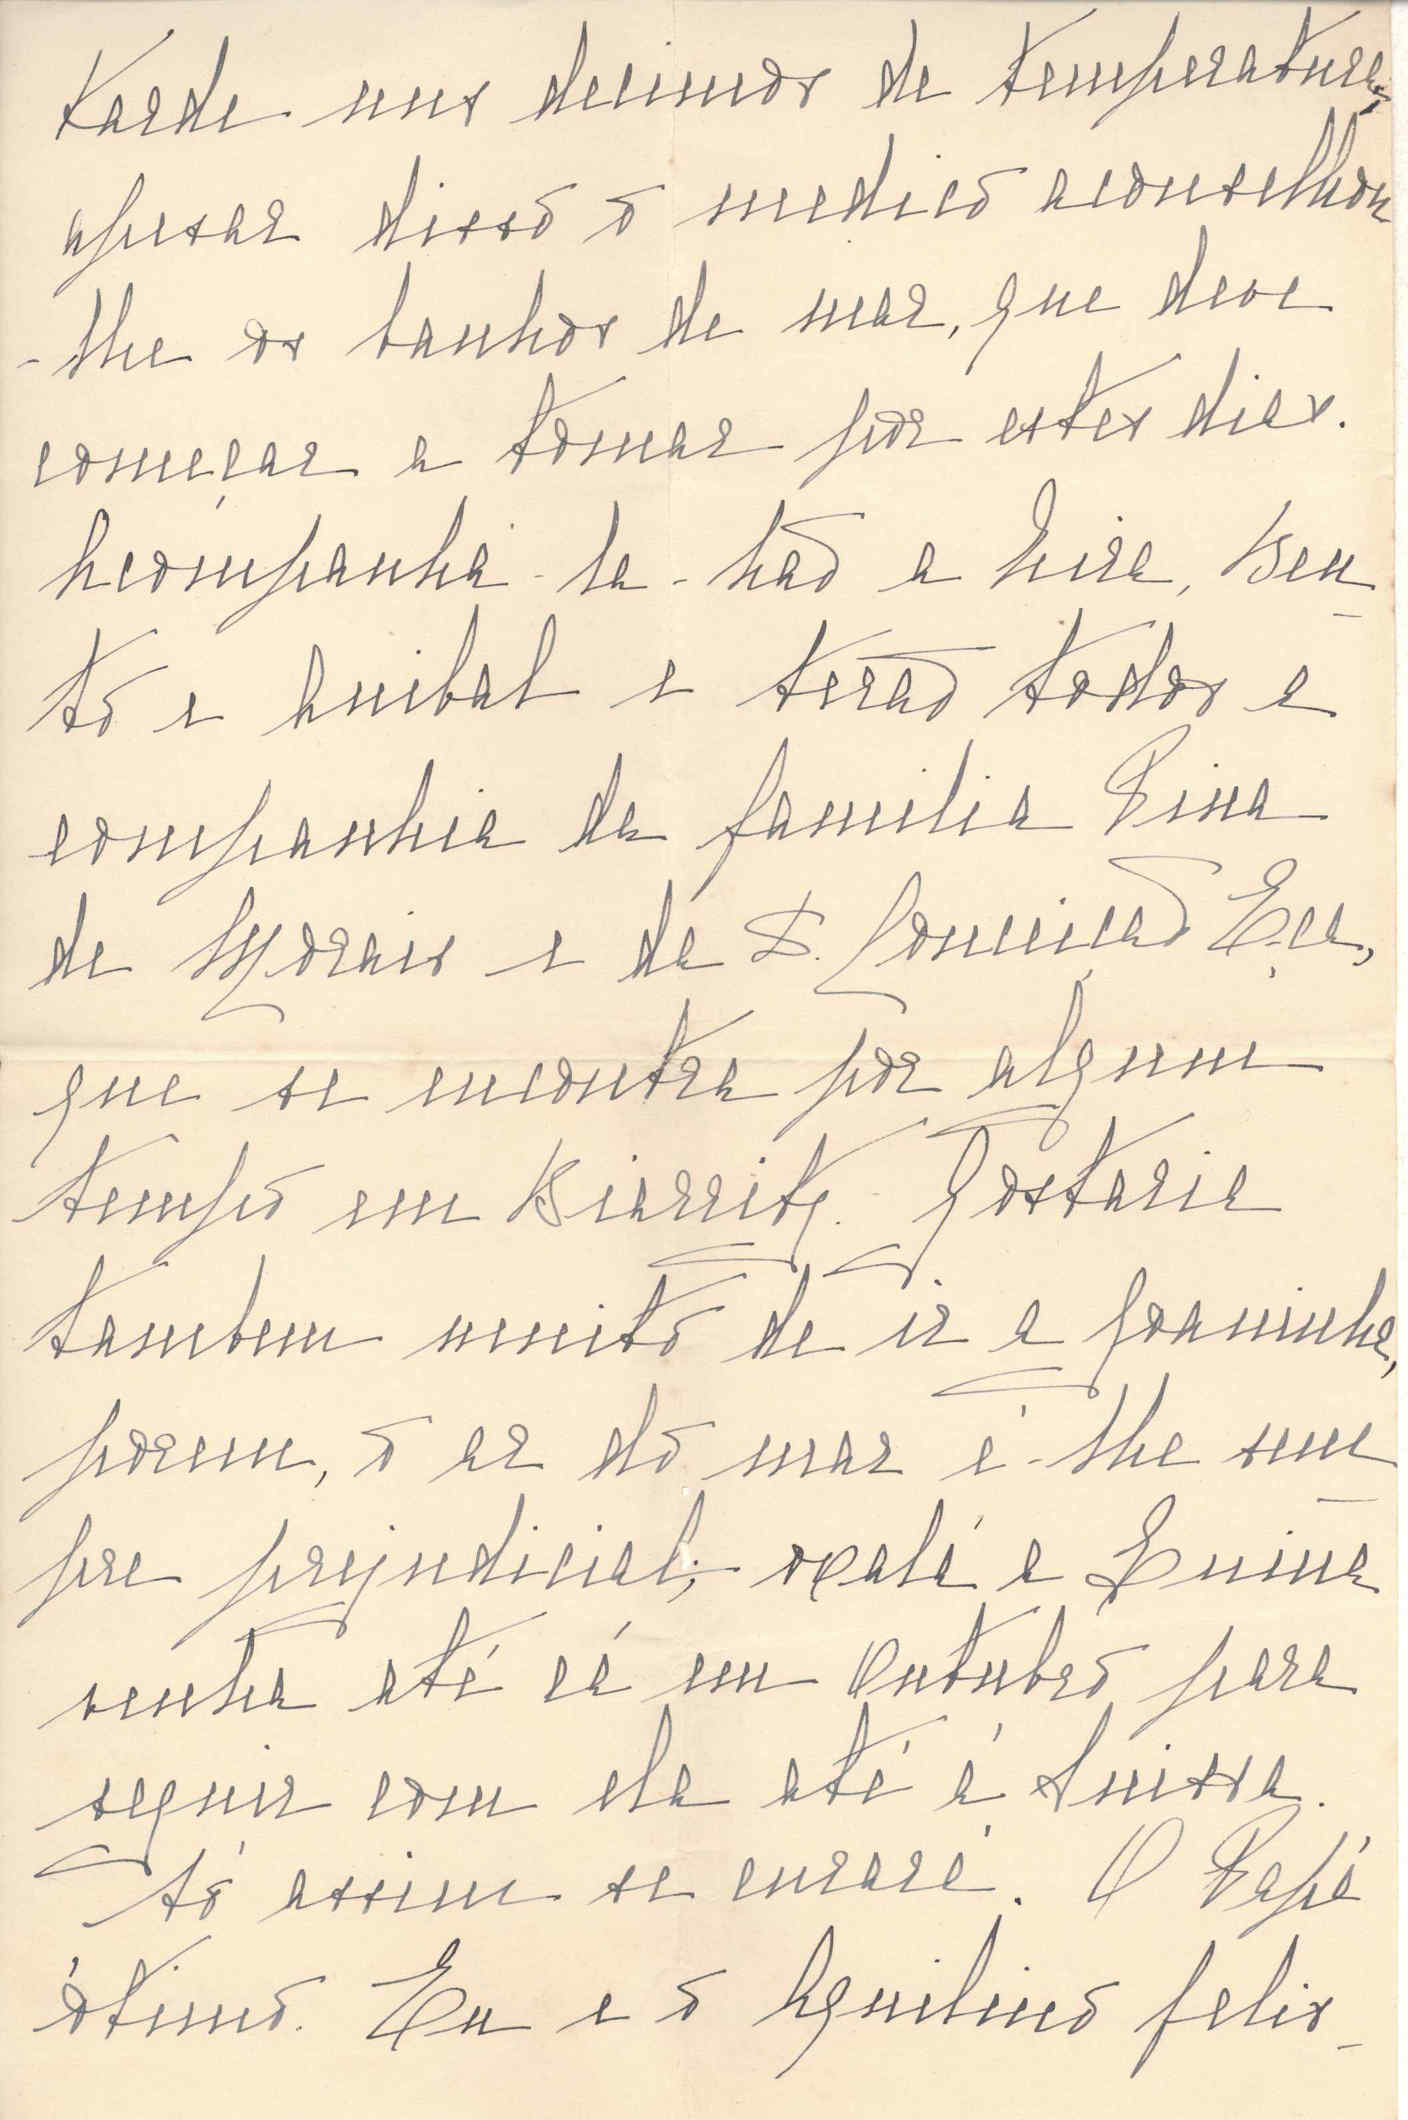 tarde uns decimos de temperatura,
apesar disso o medico aconselhou
-lhe os banhos de mar, que deve
começar a tomar por estes dias.
Acompanhá-la-hão a Lira, Ben-
to e Anibal e terão todos a
companhia da familia Pina
de Morais e da D. Conceição Eça,
que se encontra por algum
tempo em Biarritz. Gostaria
tambem muito de ir a Joaninha,
porem, o ar do mar é-lhe sem-
pre prejudicial; oxalá a Enina
venha até cá em Outubro para
seguir com ela até á Suissa.
Só assim se curará. O Papá
ótimo. Eu e o Aquilino feliz-